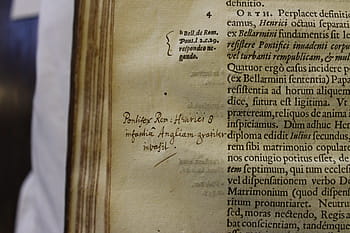 definitio.
4
ORTH. Perplacet definitio
eamus, Henrici octaui separati
ex Bellarmini fundamentis sit le
resistere Pontifici inuadenti corpu
vel turbanti rempublicam, & mul
Quatuor ergò casus incidere p
(ex Bellarmini sententia) Papa
resistentia ad horum aliquem
dice, sutura est legitima. Vt
præteream, reliquos de anima in
inspiciamus. Dum adhuc Hen
diploma edidit Iulius secundus,
rem sibi matrimonio copulare
nos coniugio potitus esset, de
tem septimum, qui tum ecclesi
vel dispensationem verbo De
Matrimonium (quod dispensa
ritum pronuntiaret. Neutrum
sed, moras nectendo, Regis a
b Bell. de Rom.
Pont. l 2. c. 29.
respondeo ne-
gando.
Pontifex Rom: Henrici 8
Angliam
inuasit.